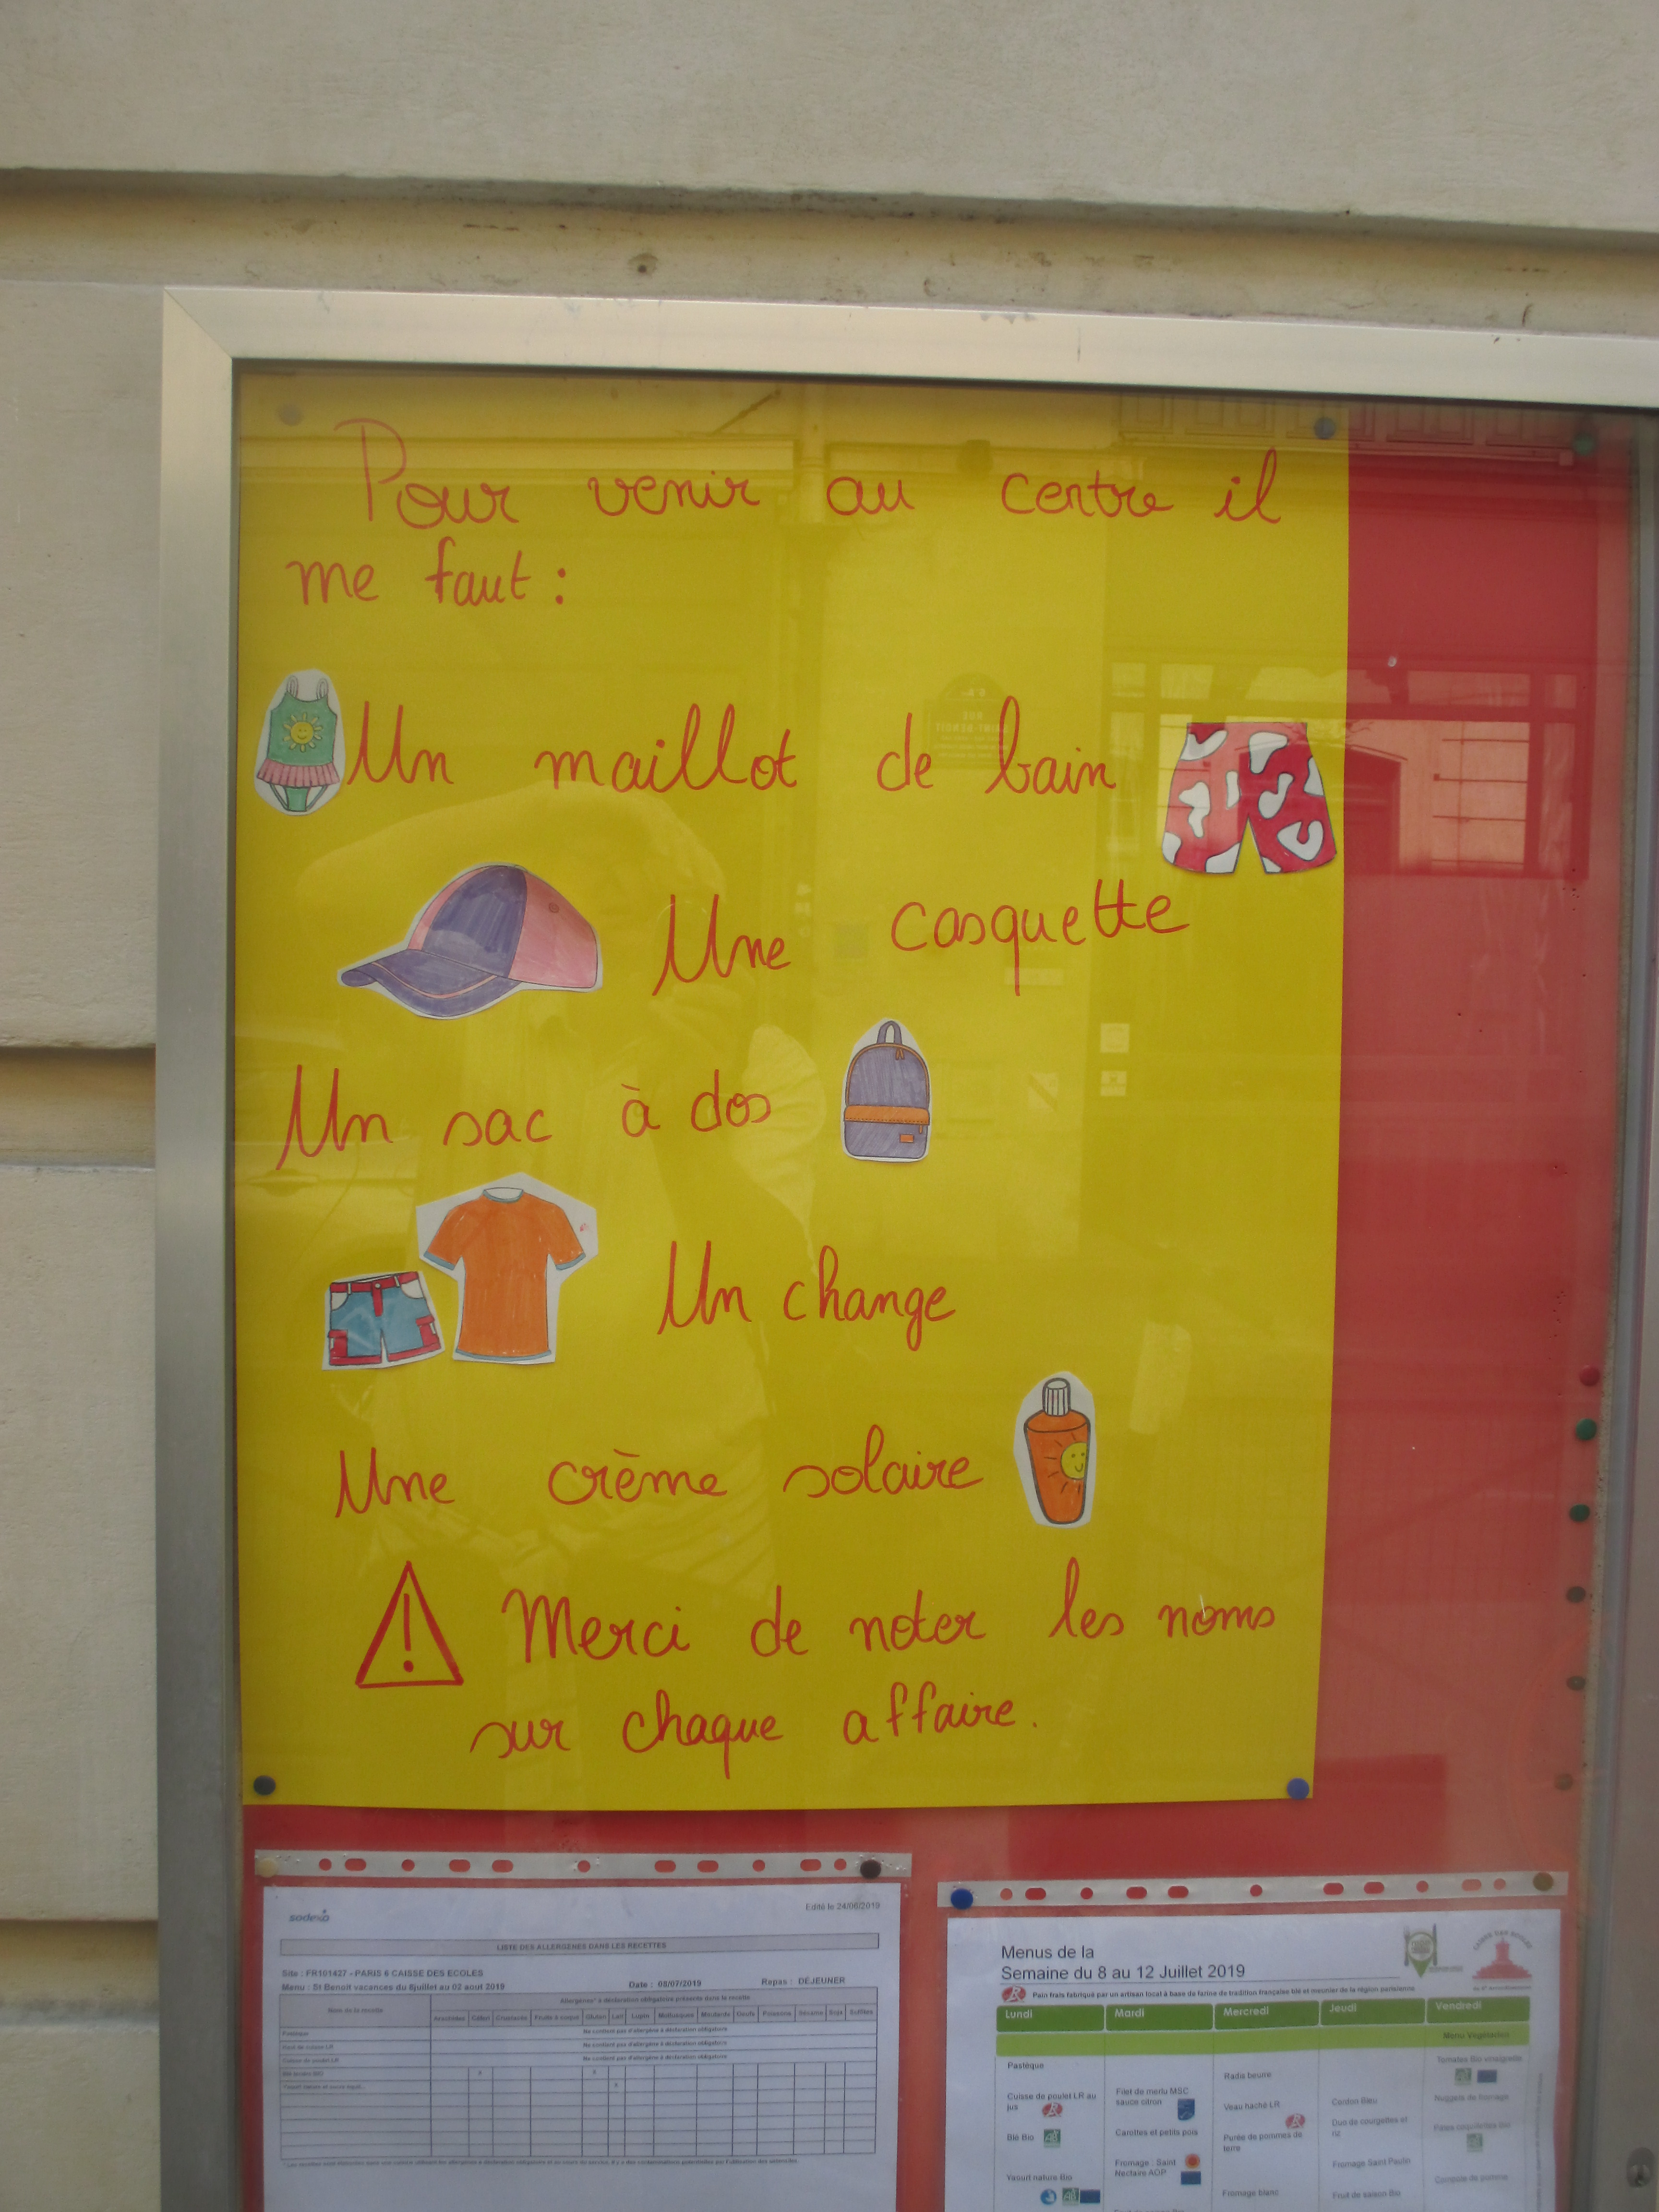 Pour venir au centre il
me faut :
Un maillot de bain
Une casquette
Un sac à dos
Un change
Une crème solaire
! Merci de noter les noms
sur chaque affaire.
sodexo
Edité le 24/06/2019
LISTE DES ALLERGENES DANS LES RECETTES
Site : FR101427 - PARIS 6 CAISSE DES ECOLES
Menu : St Benoit vacances du 8juillet au 02 aout 2019 Date : 08/07/2019 Repas : DÉJEUNER
Nom de la recette
Menus de la
Semaine du 8 au 12 Juillet 2019
Pain frais fabriqué par un artisan local à base de farine de tradition française blé et meunier de la région parisienne
Lundi Mardi Mercredi Jeudi Vendredi
Menu Végétarien
Pastèque
Cuisse de poulet LR au
jus
Blé Bio
Yaourt nature Bio
Filet de merlu MSC
sauce citron
Carottes et petits pois
Fromage : Saint
Nectaire AOP
Radis beurre
Veau haché LR
Purée de pommes de
terre
Fromage blanc
Cordon Bleu
Duo de courgettes et
riz
Fromage Saint Paulin
Fruit de saison Bio
Tomates Bio vinaigrette
Nuggets de fromage
Compote de pomme